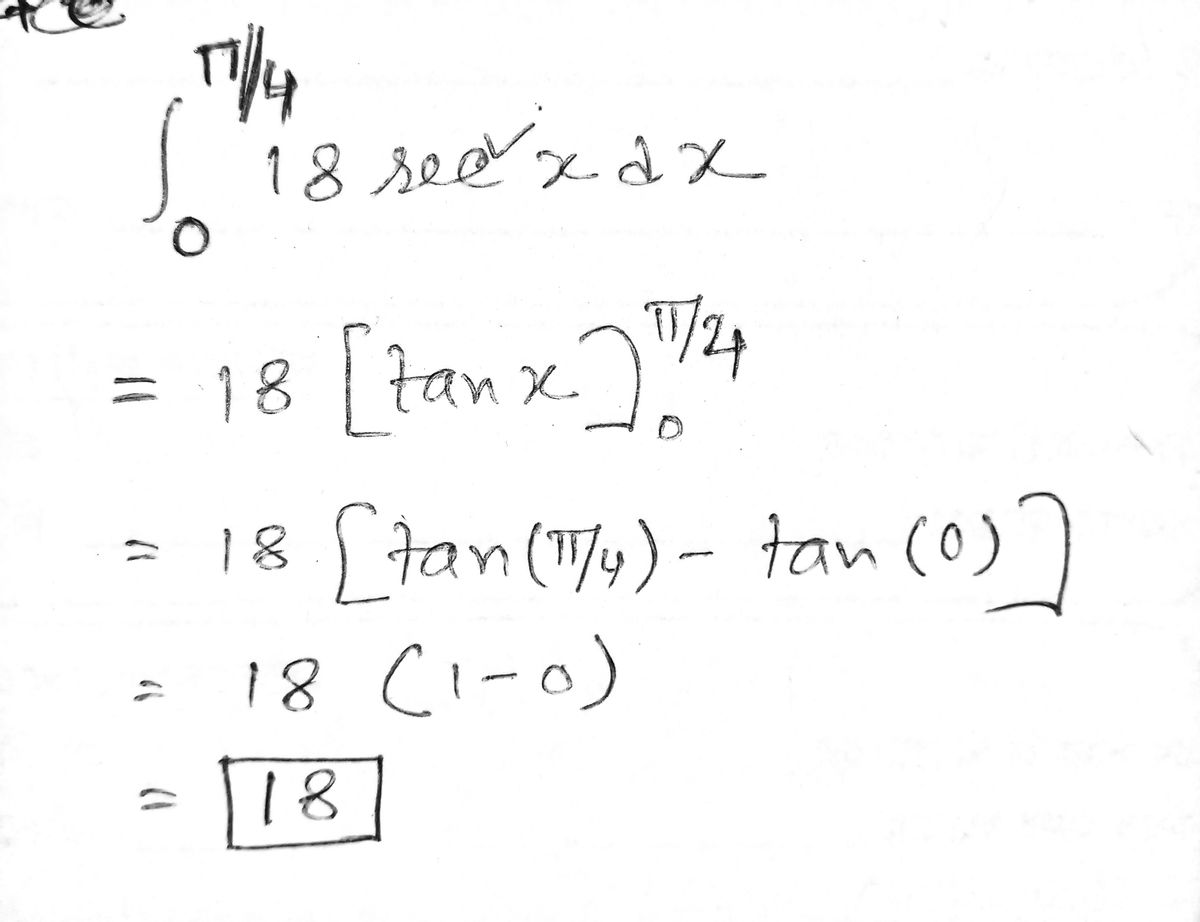 ∫₀^π/4 18 sec² x dx
= 18 [tan x]₀^π/4
= 18 [tan(π/4) - tan (0)]
= 18 (1-0)
= 18